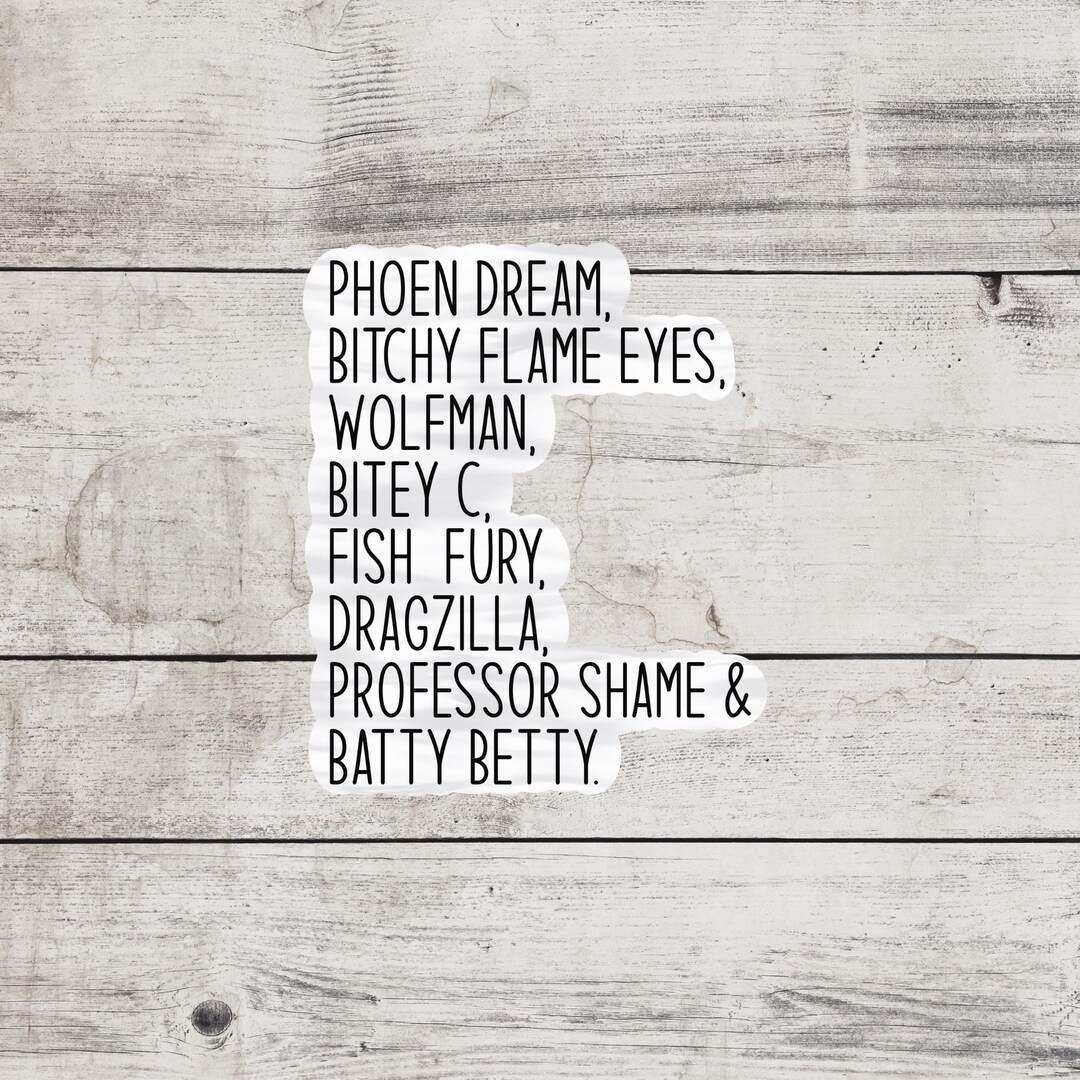 PHOEN DREAM,
BITCHY FLAME EYES,
WOLFMAN,
BITEY C,
FISH FURY,
DRAGZILLA,
PROFESSOR SHAME &
BATTY BETTY.